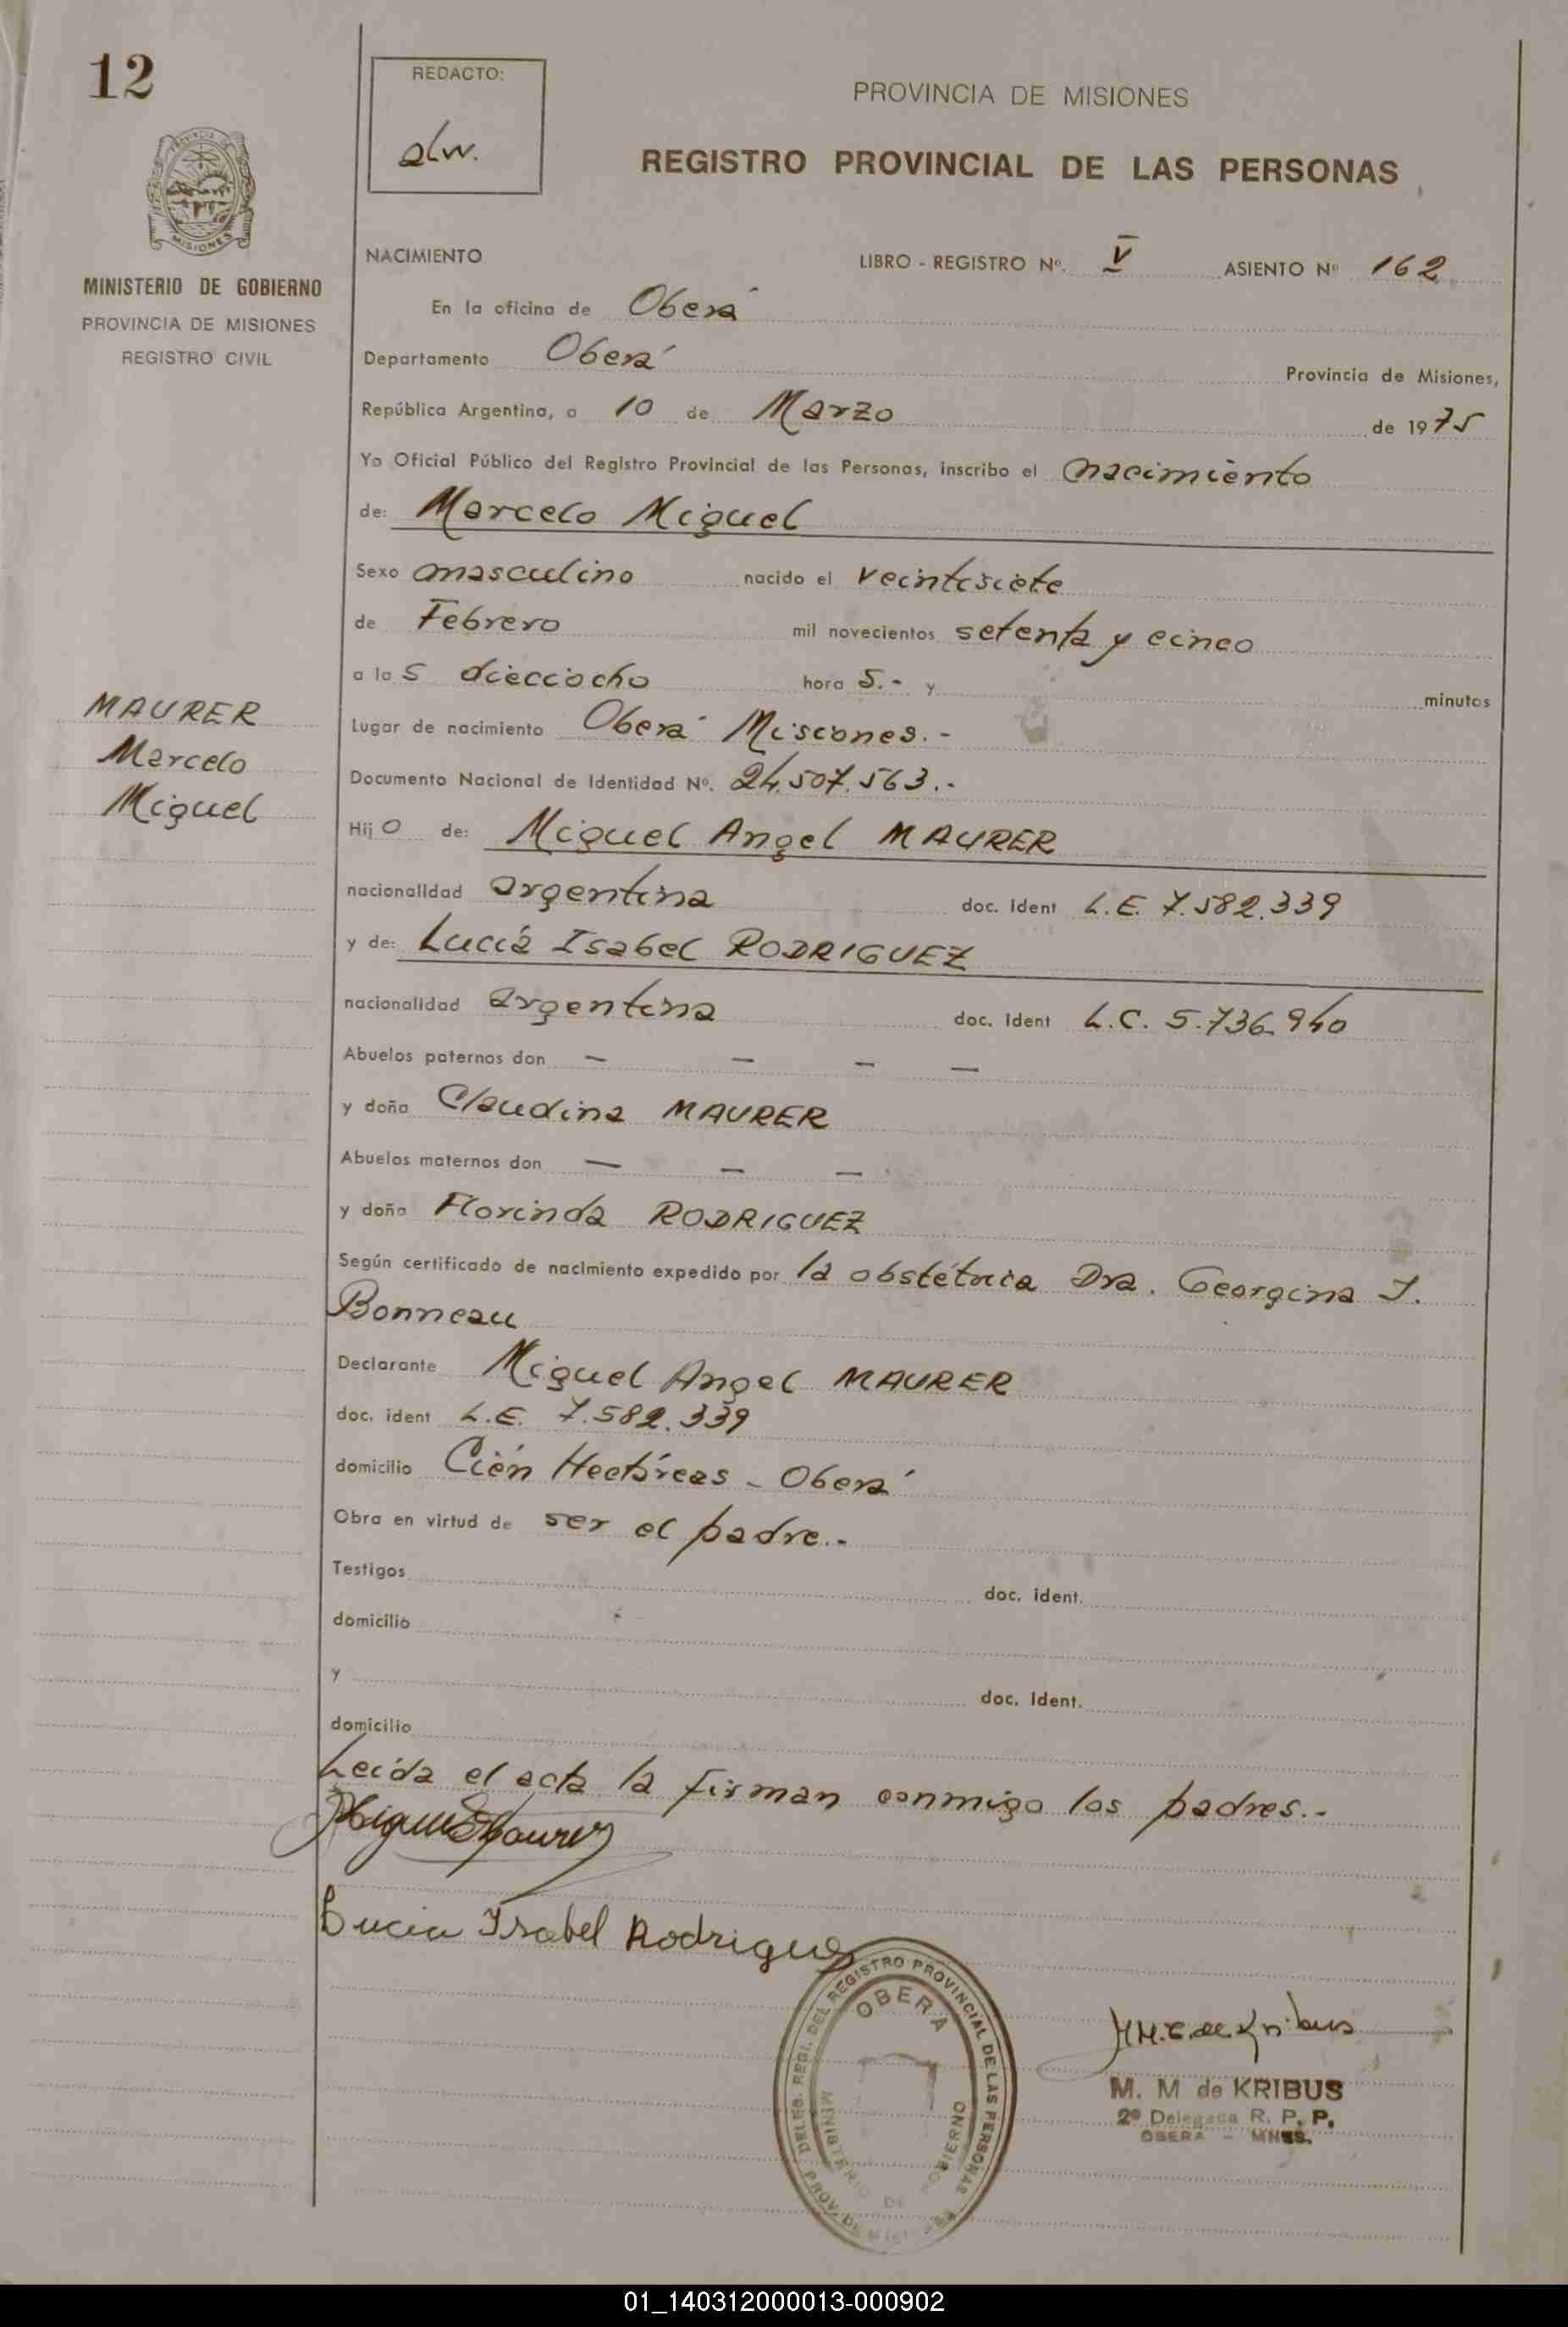 12
REDACTO:
alw.
PROVINCIA DE MISIONES
REGISTRO PROVINCIAL DE LAS PERSONAS
PROVINCIA
MISIONES
MINISTERIO DE GOBIERNO
PROVINCIA DE MISIONES
REGISTRO CIVIL
NACIMIENTO LIBRO - REGISTRO Nº. V ASIENTO Nº 162
En la oficina de Oberá
Departamento Oberá Provincia de Misiones,
República Argentina, a 10 de Marzo de 1975
Yo Oficial Público del Registro Provincial de las Personas, inscribo el nacimiento
de: Marcelo Miguel
Sexo masculino nacido el veintisiete
de Febrero mil novecientos setenta y cinco
a las dieciocho hora s.- y minutos
MAURER
Marcelo
Miguel
Lugar de nacimiento Oberá Misiones.-
Documento Nacional de Identidad Nº. 24.507.563.-
Hijo de: Miguel Angel MAURER
nacionalidad argentina doc. ident L.E. 7.582.339
y de: Lucía Isabel RODRIGUEZ
nacionalidad argentina doc. ident L.C. 5.736.940
Abuelos paternos don — — — —
y doña Claudina MAURER
Abuelos maternos don — — —
y doña Florinda RODRIGUEZ
Según certificado de nacimiento expedido por la obstétrica Dra. Georgina J.
Bonneau
Declarante Miguel Angel MAURER
doc. ident L.E. 7.582.339
domicilio Cién Hectáreas - Oberá
Obra en virtud de ser el padre.-
Testigos doc. ident.
domicilio
y doc. ident.
domicilio
Leída el acta la firman conmigo los padres.-
Lucia Isabel Rodriguez
DELEG. REGI. DEL REGISTRO PROVINCIAL DE LAS PERSONAS
OBERA
MINISTERIO DE GOBIERNO
PROV. DE MISIONES
M. M de KRIBUS
2º Delegada R. P. P.
OBERA - MNES.
01_140312000013-000902